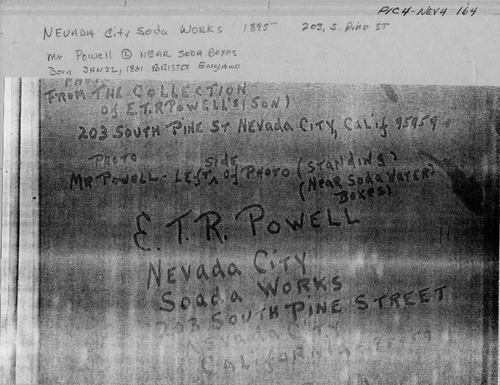 PIC4-NEV4 164
NEVADA CITY SODA WORKS 1895 203, S. PINE ST
Mr Powell Ⓛ NEAR SODA BOXES
Born JAN 22, 1861 BRISTOL ENGLAND
FROM THE COLLECTION
of E.T.R POWELL'S (SON)
203 SOUTH PINE ST NEVADA CITY, CALIF 95959
PHOTO SIDE
MR POWELL - LEFT, OF PHOTO (STANDING)
(NEAR SODA WATER
BOXES)
E.T.R. POWELL
NEVADA CITY
SOADA WORKS
203 SOUTH PINE STREET
NEVADA CITY
CALIFORNIA - 95959